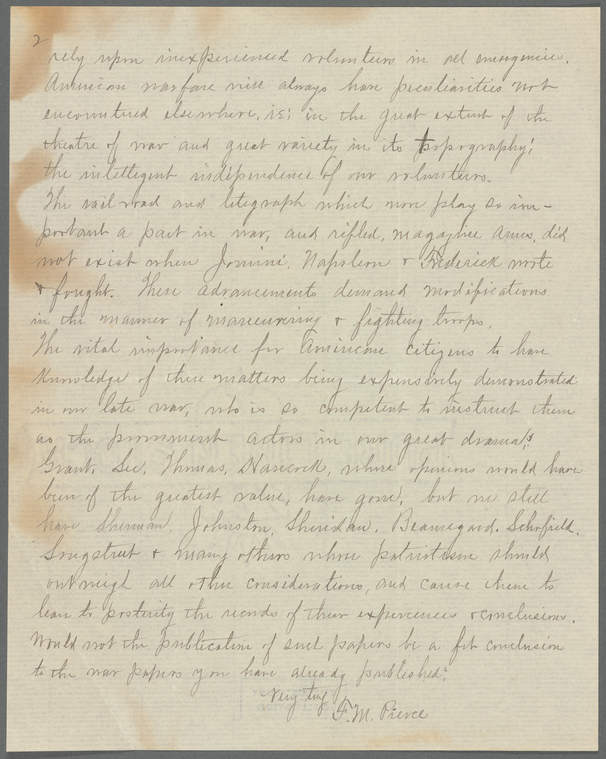 2
rely upon inexperienced volunteers in all emergencies.
American warfare will always have peculiarities not
encountered elsewhere, is; in the great extent of the
theatre of war and great variety in its topography;
the intellegent independence of our volunteers.
The rail-road and telegraph which now play so im-
portant a part in war, and rifled, magazine arms, did
not exist when Jomini, Napoleon & Frederick wrote
& fought. These advancements demand modifications
in the manner of maneuvering & fighting troops.
The vital importance for American citizens to have
knowledge of these matters being expensively demonstrated
in our late war, who is so competent to instruct them
as the prominent actors in our great drama?
Grant, Lee, Thomas, Hancock, whose opinions would have
been of the greatest value, have gone, but we still
have Sherman, Johnston, Sheridan, Beauregard, Schofield,
Longstreet & many others whose patriotism should
outweigh all other considerations, and cause them to
leave to posterity the records of their experiences & conclusions.
Would not the publication of such papers be a fit conclusion
to the war papers you have already published?
Very truly
F. M. Pierce